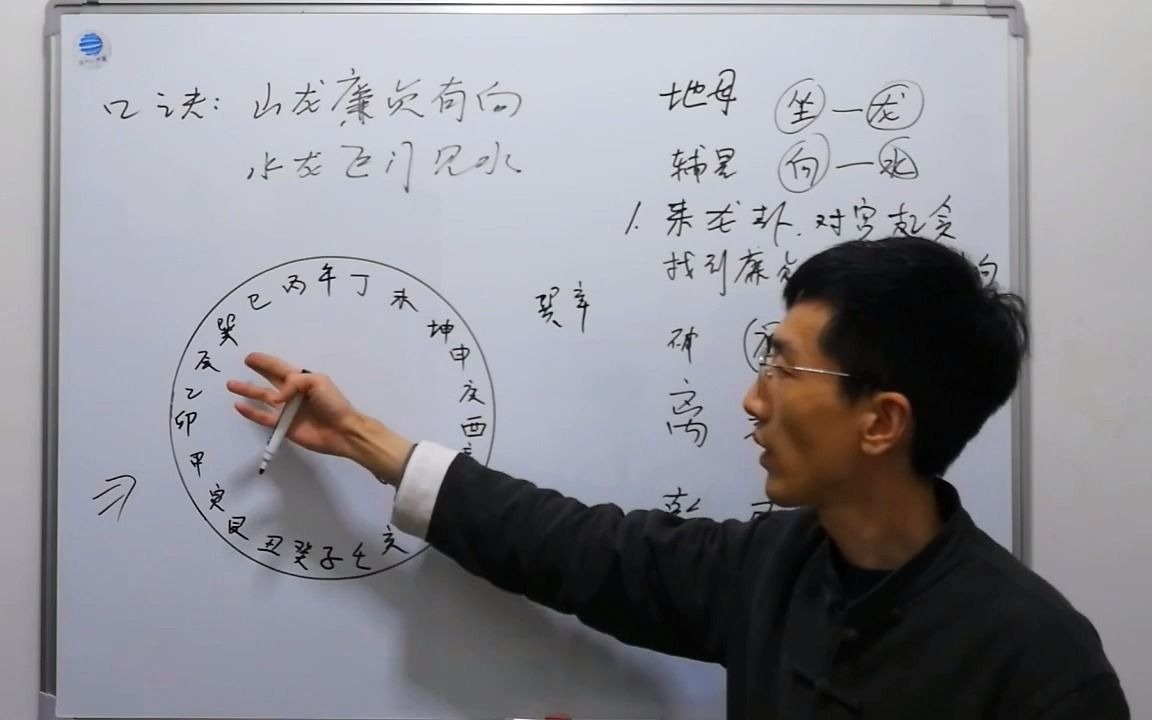 口诀：山龙廉贞有向
水龙巨门见水
地母 坐—龙
辅星 向—水
1. 来龙卦、对宫起贪
找到廉贞 向
巽辛
离
巳 丙 午 丁 未
巽 坤
辰 申
乙 庚
卯 酉
甲
寅
艮 丑 癸 子 壬 亥